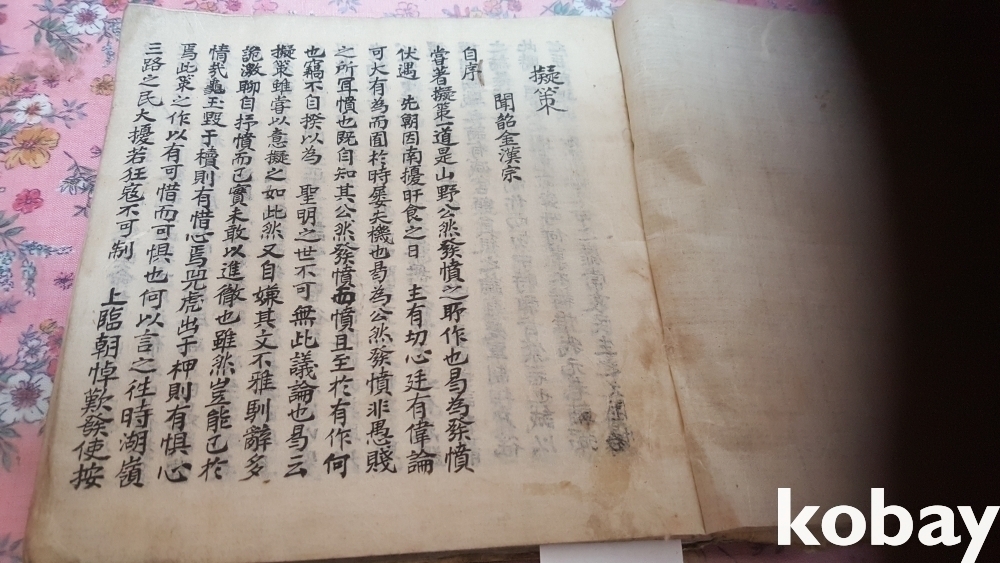 擬策
聞韶金漢宗
自序
嘗著擬策一道是山野公然發憤之所作也曷為發憤
伏遇 先朝因南擾旰食之日 主有切心廷有偉論
可大有為而固於時屢失機也曷為公然發憤非愚賤
之所宜憤也既自知其公然發憤而憤且至於有作何
也竊不自揆以為 聖明之世不可無此議論也曷云
擬策雖嘗以意擬之如此然又自嫌其文不雅馴辭多
詭激聊自抒憤而已實未敢以進徹也雖然豈能已於
情哉龜玉毀于櫝則有惜心焉兕虎出于柙則有惧心
焉此策之作以有可惜而可惧也何以言之往時湖嶺
三路之民大擾若狂寇不可制 上臨朝悼歎發使按
kobay